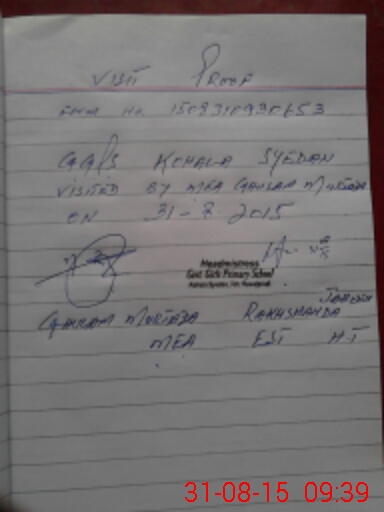 VISIT PROOF
EMM No. 1508310930653
GGPS KOHALA SYEDAN
VISITED BY MEA GAHSAN MURTAZA
ON 31-8-2015
Headmistress
Govt Girls Primary School
GAHSAN MURTAZA RAKHSHANDA JABEEN
MEA EST H.T
31-08-15 09:39